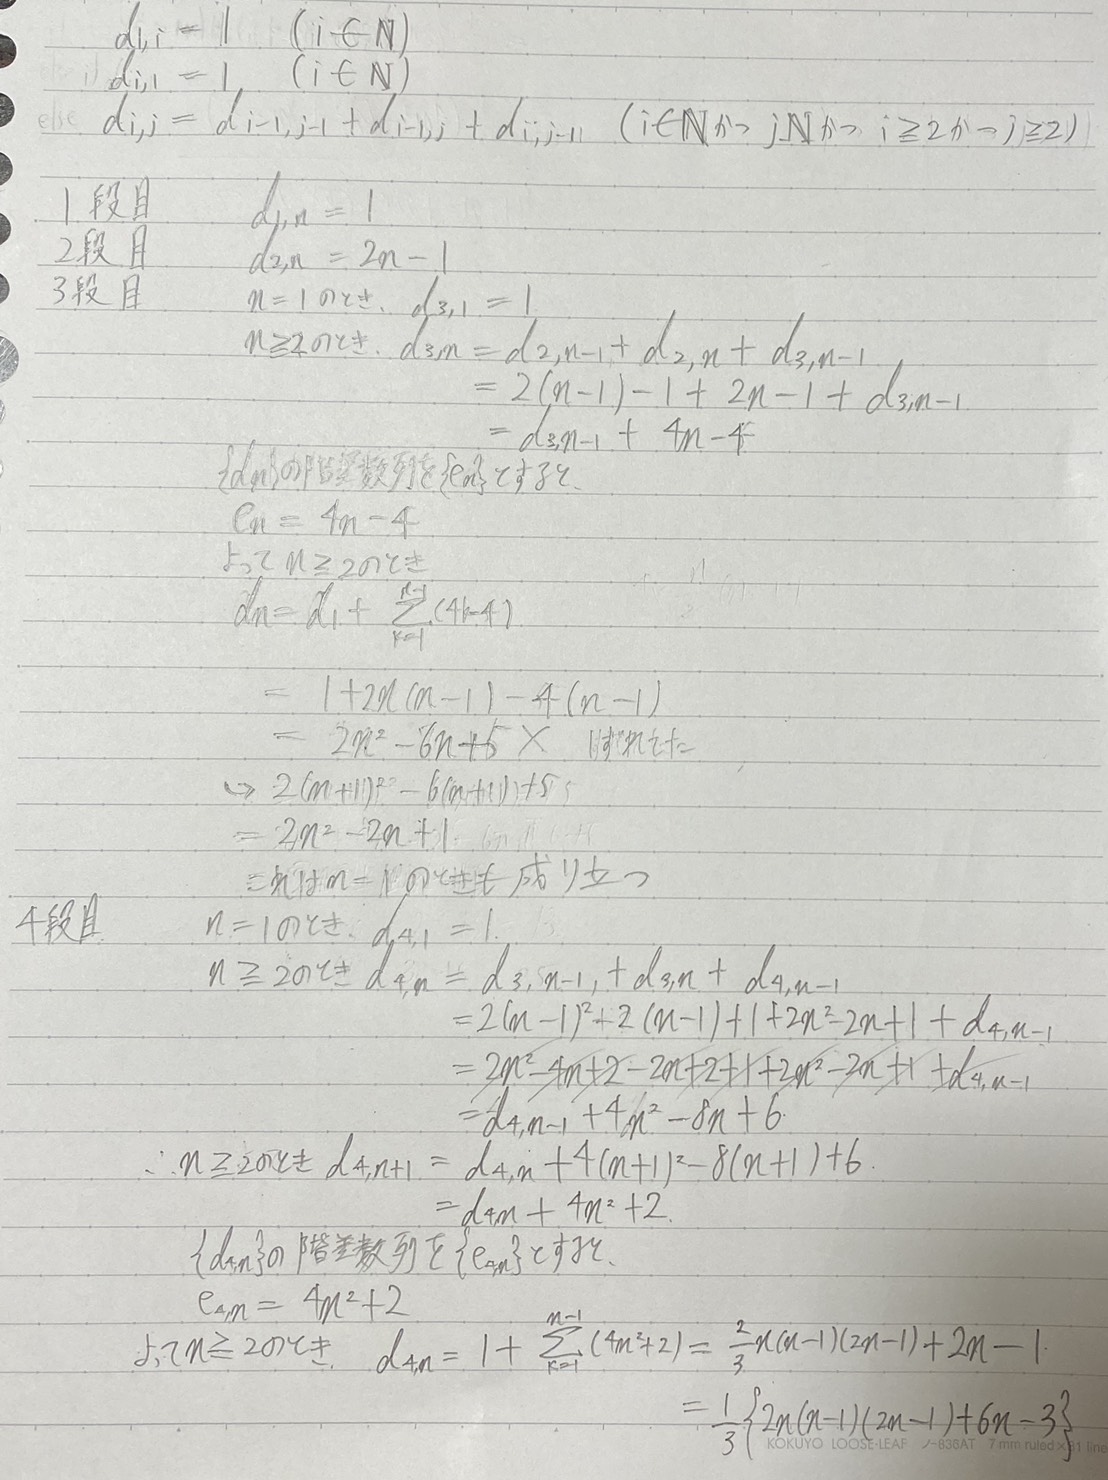 d₁,ᵢ = 1 (i∈ℕ)
dᵢ,₁ = 1 (i∈ℕ)
else dᵢ,ⱼ = dᵢ₋₁,ⱼ₋₁ + dᵢ₋₁,ⱼ + dᵢ,ⱼ₋₁ (i∈ℕかつ jℕかつ i≧2かつj≧2)
1段目 d₁,ₙ = 1
2段目 d₂,ₙ = 2n-1
3段目 n=1のとき. d₃,₁ = 1
n≧2のとき. d₃,ₙ = d₂,ₙ₋₁ + d₂,ₙ + d₃,ₙ₋₁
= 2(n-1)-1 + 2n-1 + d₃,ₙ₋₁
= d₃,ₙ₋₁ + 4n-4
{dₙ}の階差数列を{eₙ}とすると、
eₙ = 4n-4
よってn≧2のとき
dₙ = d₁ + Σ_{k=1}^{n-1}(4k-4)
= 1+2n(n-1)-4(n-1)
= 2n²-6n+5 × はずれてた
↪ 2(n+1)²-6(n+1)+5
= 2n²-2n+1
これはn=1のときも成り立つ
4段目 n=1のとき. d₄,₁ = 1.
n≧2のとき d₄,ₙ = d₃,ₙ₋₁, + d₃,ₙ + d₄,ₙ₋₁
= 2(n-1)²+2(n-1)+1+2n²-2n+1 + d₄,ₙ₋₁
= 2n²-4n+2-2n+2+1+2n²-2n+1+d₄,ₙ₋₁
= d₄,ₙ₋₁ + 4n²-8n+6.
∴n≧2のとき d₄,ₙ₊₁ = d₄,ₙ + 4(n+1)²-8(n+1)+6.
= d₄,ₙ + 4n²+2.
{d₄,ₙ}の階差数列を{e₄,ₙ}とすると、
e₄,ₙ = 4n²+2
よってn≧2のとき. d₄,ₙ = 1+ Σ_{k=1}^{n-1}(4n²+2) = 2/3 n(n-1)(2n-1)+2n-1.
= 1/3{2n(n-1)(2n-1)+6n-3}
KOKUYO LOOSE-LEAF ノ-836AT 7mm ruled×31 line